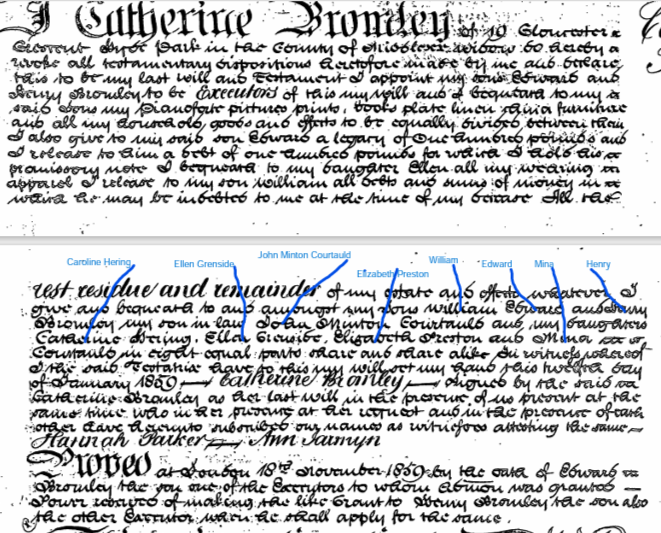 I Catherine Bromley of 19 Gloucester
Crescent Hyde Park in the County of Middlesex Widow do hereby
revoke all testamentary dispositions heretofore made by me and declare
this to be my last will and Testament I appoint my sons Edward and
Henry Bromley to be Executors of this my will and I bequeath to my
said sons my Pianoforte pictures prints, books plate linen china furniture
and all my household goods and effects to be equally divided between them
I also give to my said son Edward a legacy of One hundred pounds and
I release to him a debt of one hundred pounds for which I hold his
promissory note I bequeath to my daughter Ellen all my wearing
apparel I release to my son William all debts and sums of money in
which he may be indebted to me at the time of my decease All the
Caroline Hering
Ellen Grenside
John Minton Courtauld
Elizabeth Preston
William
Edward
Mina
Henry
rest residue and remainder of my estate and effects whatever I
give and bequeath to and amongst my sons William Edward and Henry
Bromley my son in law John Minton Courtauld and my daughters
Catherine Hering, Ellen Grenside, Elizabeth Preston and Mina
Courtauld in eight equal parts share and share alike In witness whereof
I the said Testatrix have to this my will set my hand this twelfth day
of January 1859 — Catherine Bromley — Signed by the said
Catherine Bromley as her last will in the presence of us present at the
same time who in her presence at her request and in the presence of each
other have hereunto subscribed our names as witnesses attesting the same —
Hannah Parker — Ann Jarmyn
Proved at London 18th November 1859 by the oath of Edward
Bromley the son one of the Executors to whom Admon was granted —
Power reserved of making the like Grant to Henry Bromley the son also
the other Executor when he shall apply for the same.